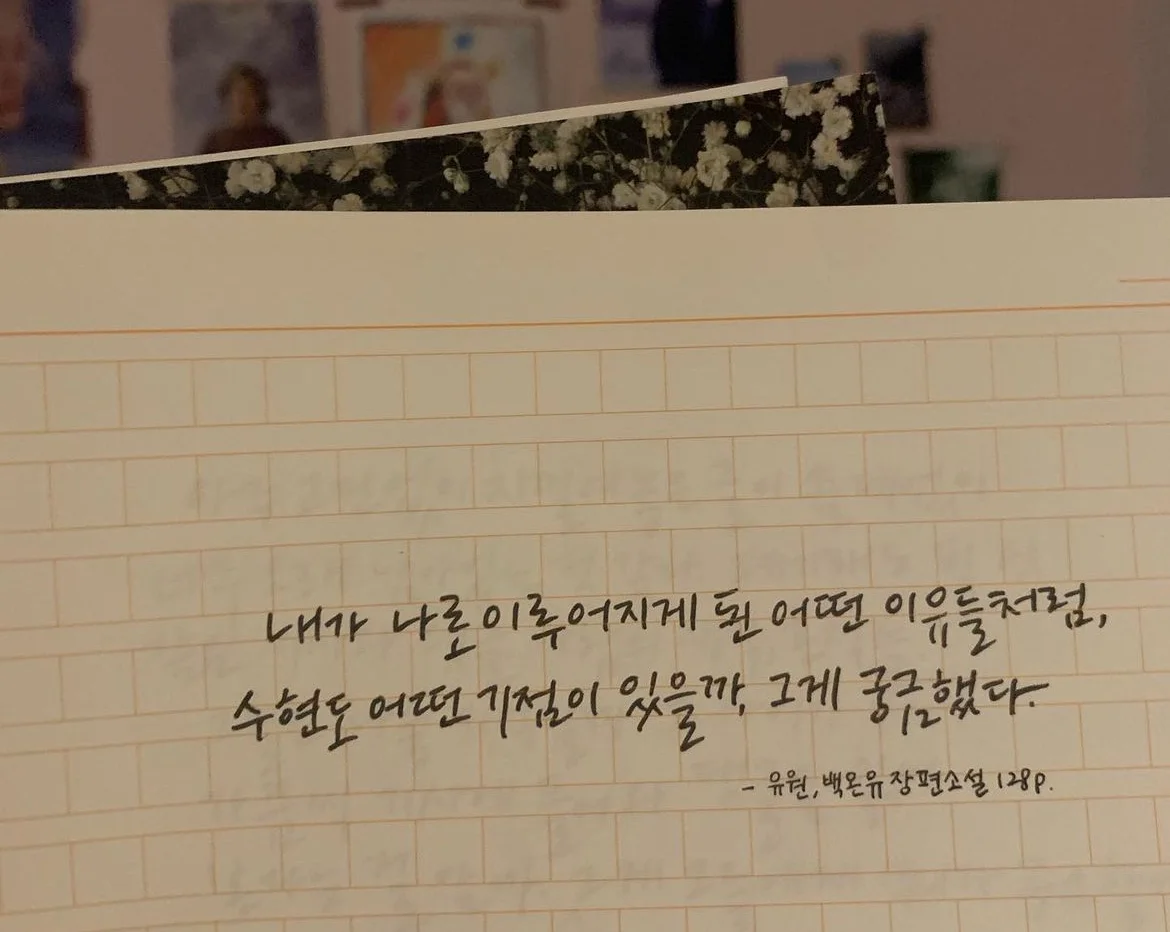 내가 나로 이루어지게 된 어떤 이유들처럼,
수현도 어떤 기점이 있을까, 그게 궁금했다.
- 유원, 백온유 장편소설 128p.